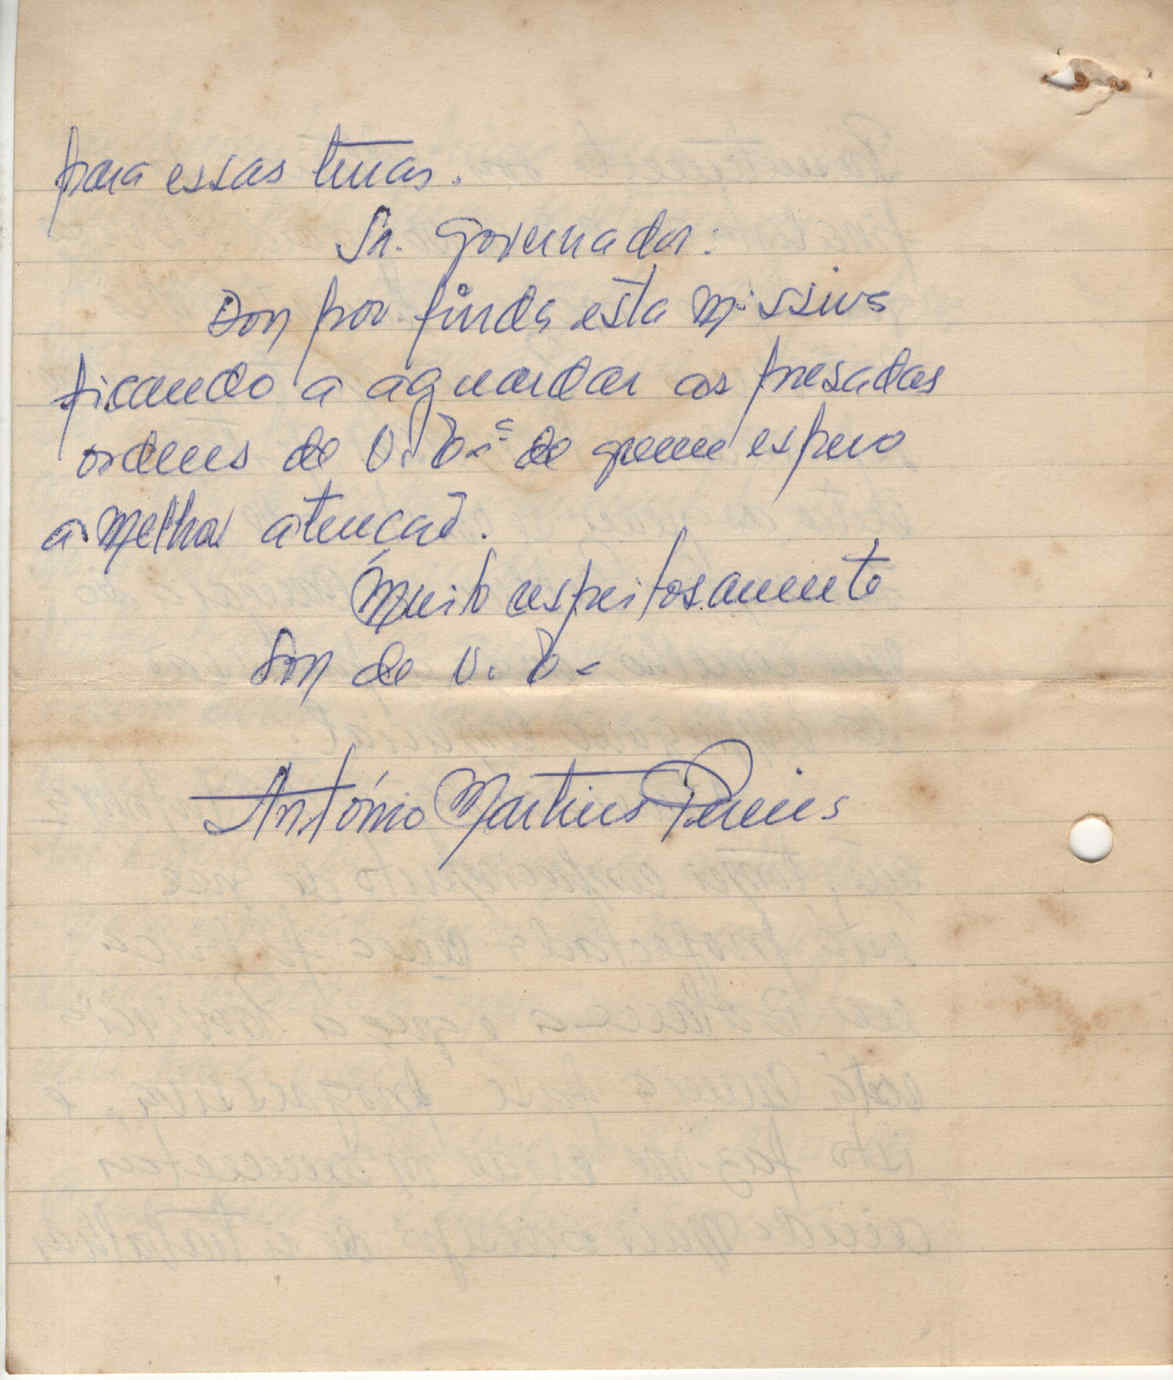 para essas terras.
Sr. Governador:
Dou por finda esta missiva
ficando a aguardar as presadas
ordens de V. Ex.ª de quem espero
a melhor atenção.
Muito respeitosamente
Sou de V. Ex.
António Martins